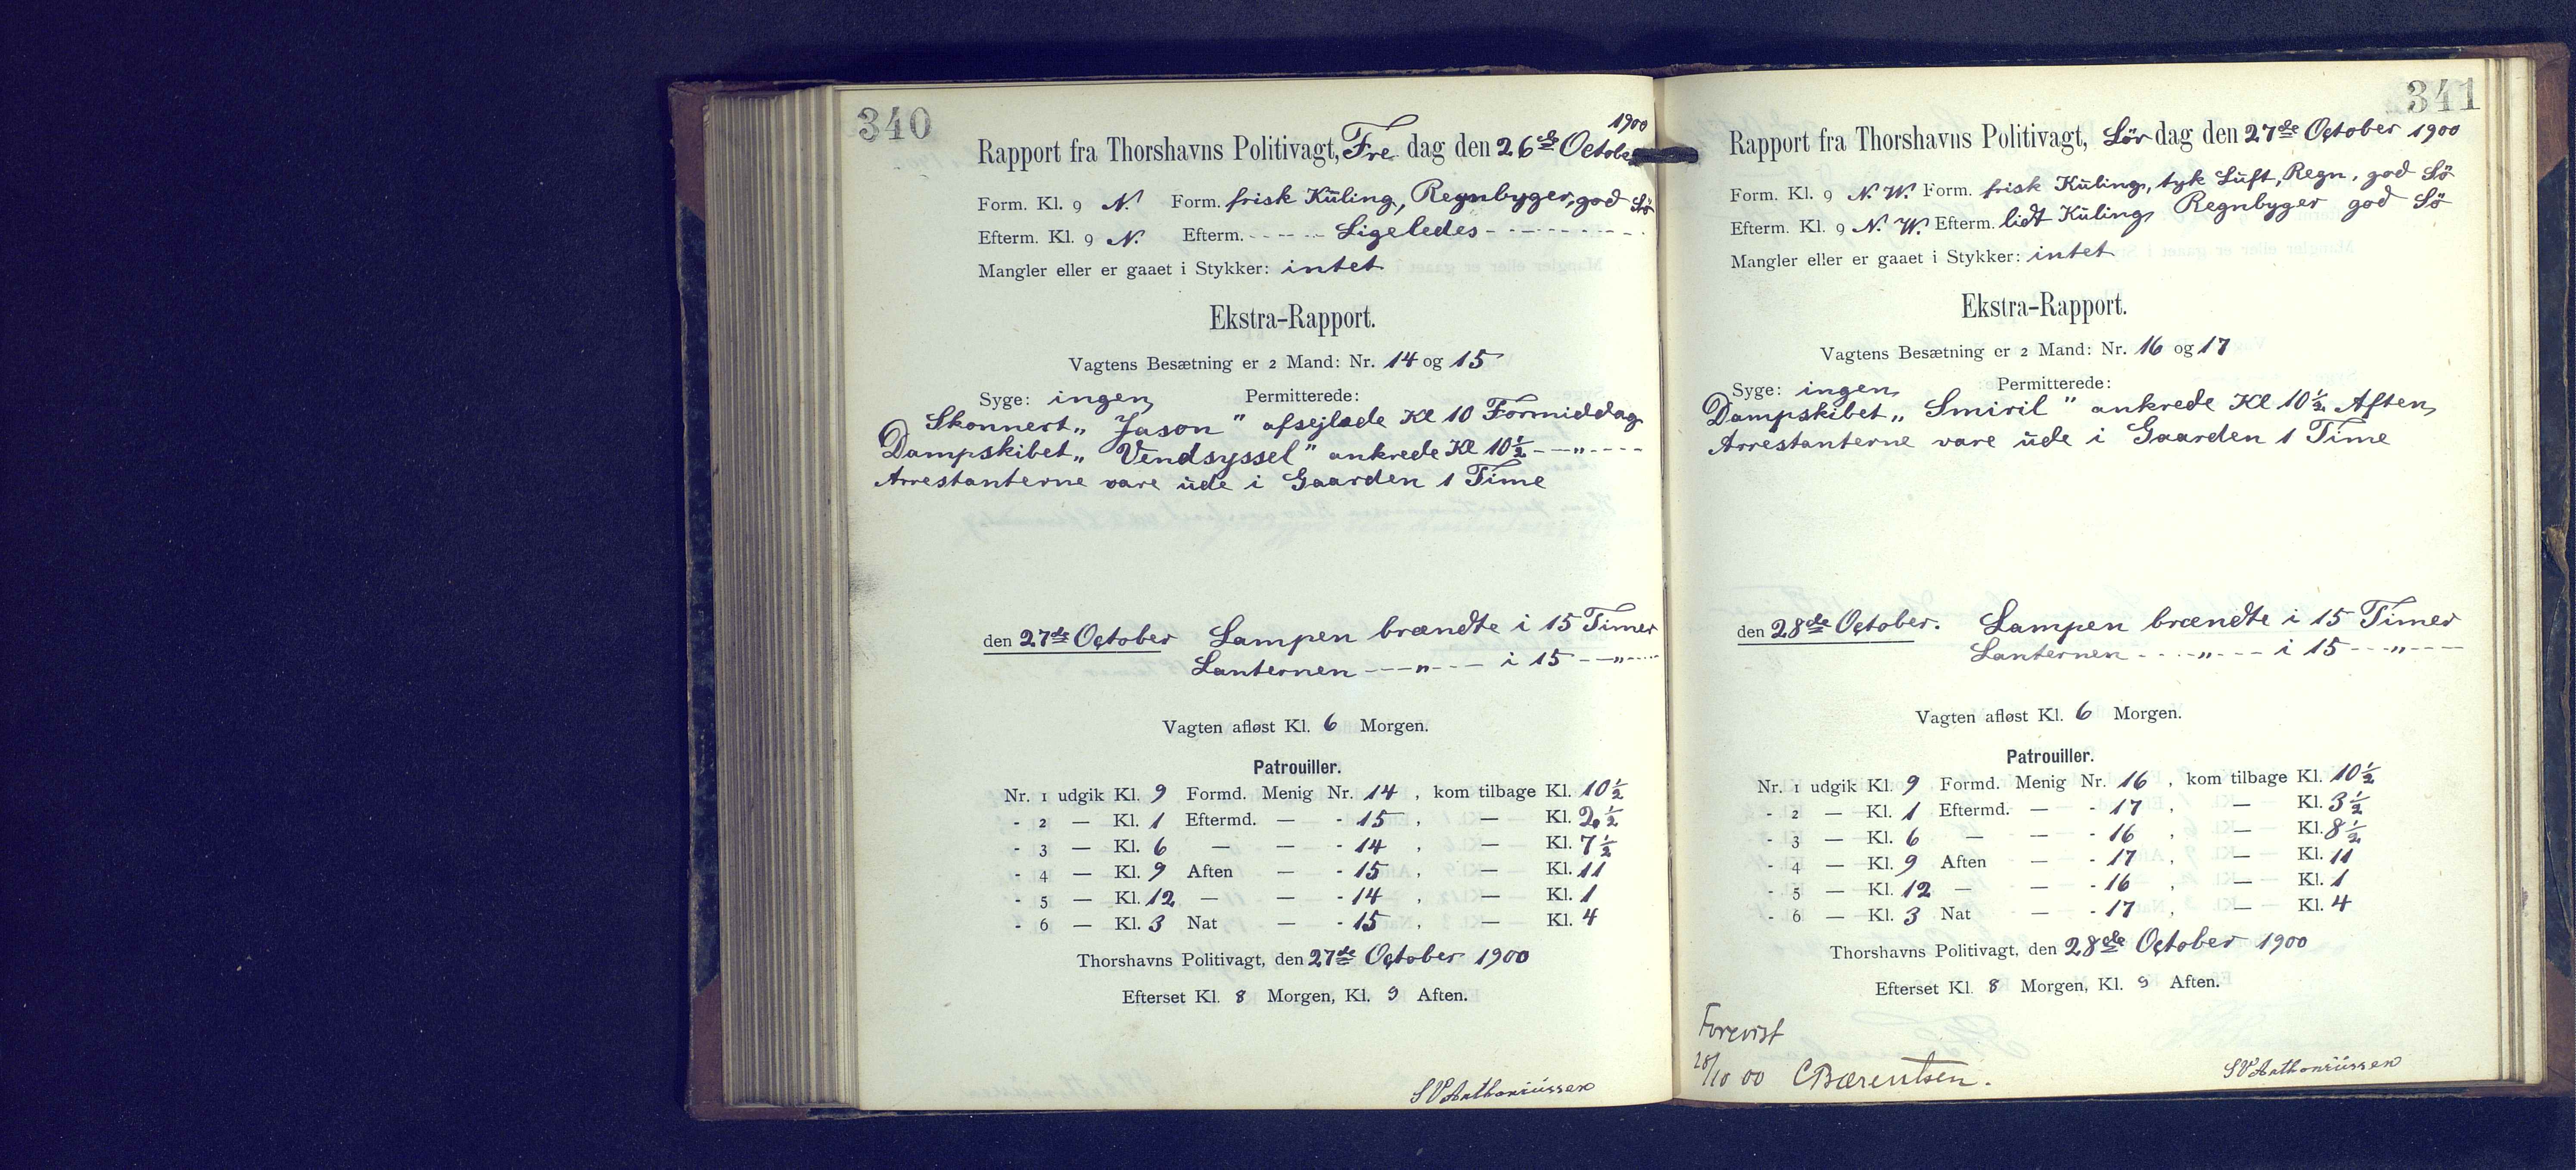 340
1900
Rapport fra Thorshavns Politivagt, Fre dag den 26de October
Form. Kl. 9 N. Form. frisk Kuling, Regnbyger, god Sö
Efterm. Kl. 9 N. Efterm. - - - - - Ligeledes - - - - - - - - -
Mangler eller er gaaet i Stykker: intet
Ekstra-Rapport.
Vagtens Besætning er 2 Mand: Nr. 14 og 15
Syge: ingen Permitterede:
Skonnert „ Jason " afsejlede Kl 10 Formiddag
Dampskibet „ Vendsyssel " ankrede Kl 10½ - — „ - - - -
Arrestanterne vare ude i Gaarden 1 Time
den 27de October Lampen brændte i 15 Timer
Lanternen - — „ - - - i 15 - — „ - - -
Vagten afløst Kl. 6 Morgen.
Patrouiller.
Nr. 1 udgik Kl. 9 Formd. Menig Nr. 14 , kom tilbage Kl. 10½
- 2 — Kl. 1 Eftermd. — - 15 , — Kl. 2½
- 3 — Kl. 6 — — - 14 , — Kl. 7½
- 4 — Kl. 9 Aften — - 15 , — Kl. 11
- 5 — Kl. 12 — — - 14 , — Kl. 1
- 6 — Kl. 3 Nat — - 15 , — Kl. 4
Thorshavns Politivagt, den 27de October 1900
Efterset Kl. 8 Morgen, Kl. 9 Aften.
SVAnthoniússen
341
Rapport fra Thorshavns Politivagt, Lör dag den 27de October 1900
Form. Kl. 9 N. W. Form. frisk Kuling, tyk Luft, Regn, god Sö
Efterm. Kl. 9 N. W. Efterm. lidt Kuling, Regnbyger god Sö
Mangler eller er gaaet i Stykker: intet
Ekstra-Rapport.
Vagtens Besætning er 2 Mand: Nr. 16 og 17
Syge: ingen Permitterede:
Dampskibet „ Smiril " ankrede Kl 10½ Aften
Arrestanterne vare ude i Gaarden 1 Time
den 28de October. Lampen brændte i 15 Timer
Lanternen - - - „ - - - i 15 - - - „ - - -
Vagten afløst Kl. 6 Morgen.
Patrouiller.
Nr. 1 udgik Kl. 9 Formd. Menig Nr. 16 , kom tilbage Kl. 10½
- 2 — Kl. 1 Eftermd. — - 17 , — Kl. 3½
- 3 — Kl. 6 — — - 16 , — Kl. 8½
- 4 — Kl. 9 Aften — - 17 , — Kl. 11
- 5 — Kl. 12 — — - 16 , — Kl. 1
- 6 — Kl. 3 Nat — - 17 , — Kl. 4
Thorshavns Politivagt, den 28de October 1900
Efterset Kl. 8 Morgen, Kl. 9 Aften.
Forevist
28/10 00 CBærentsen.
SVAnthoniússen